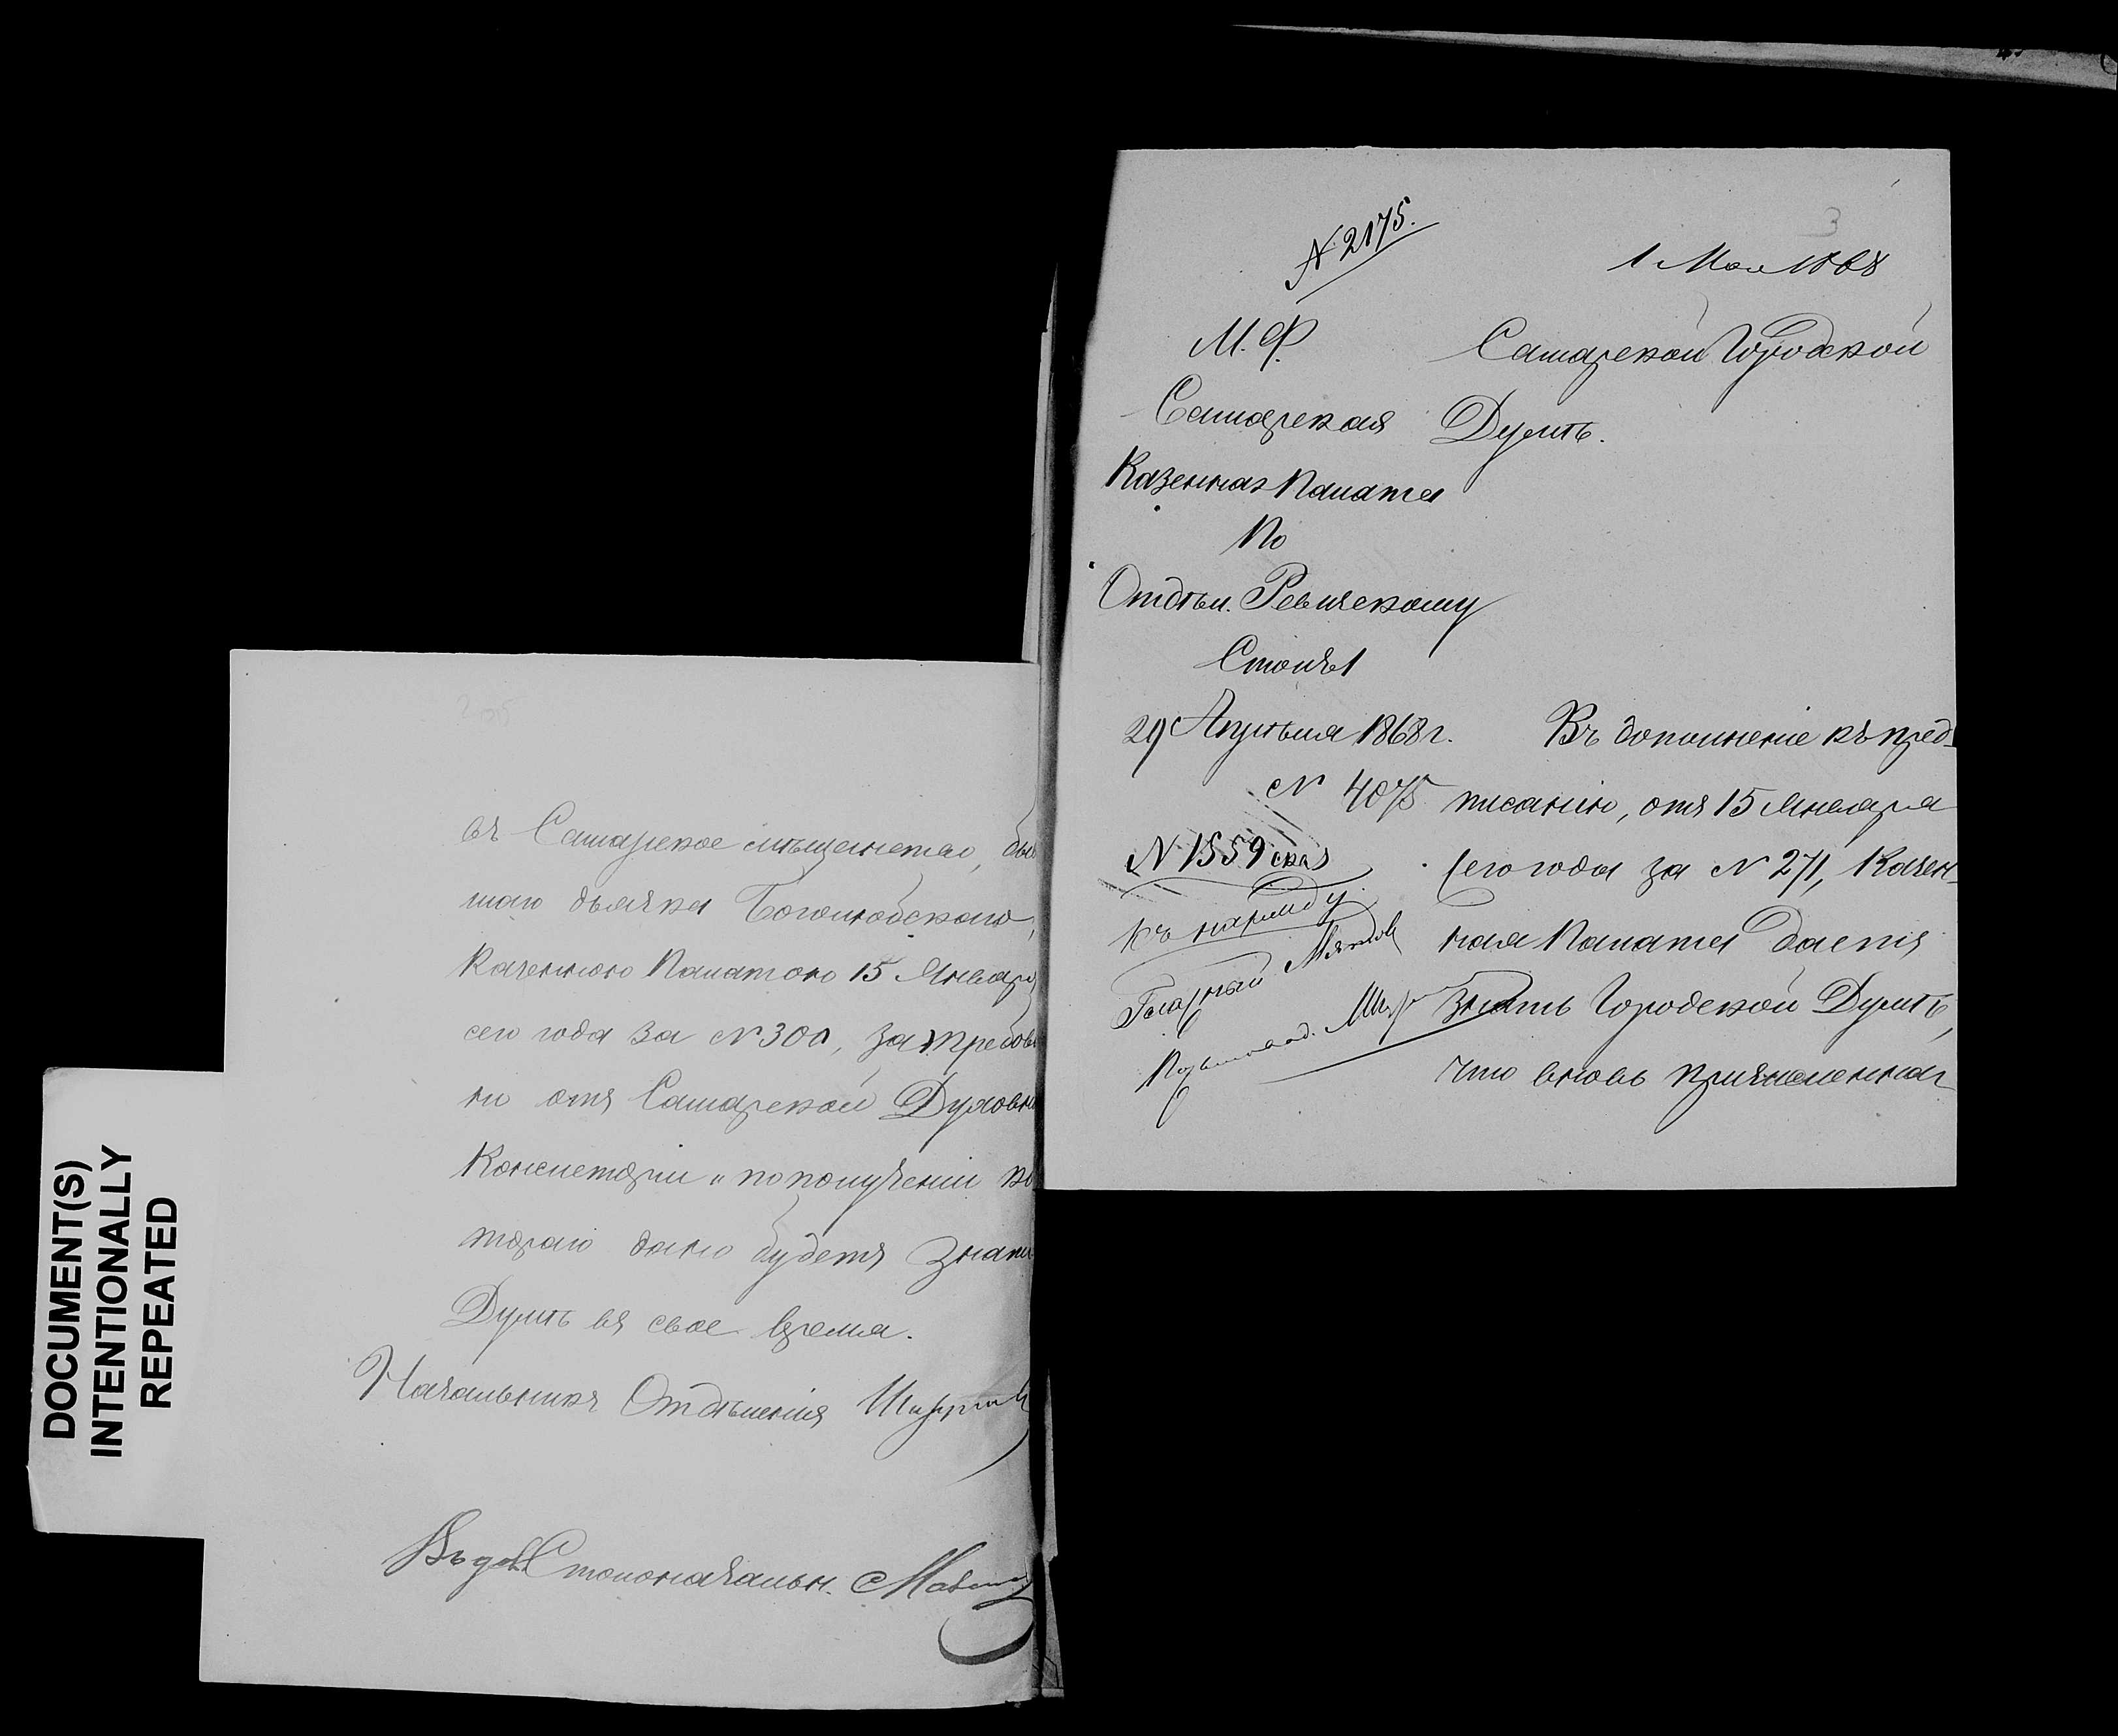 въ Самарское мѣщенство, быв
шаго дьячка Боголюбскаго,
Казенною Палатою 15 Январ
сего года за № 300, затребова
ны отъ Самарской Духовн
Консисторіи и по полученіи ко
тораго дано будетъ знать
Думѣ въ свое время.
Начальникъ Отдѣленія
Столоначальн.
DOCUMENT(S)
INTENTIONALLY
REPEATED
3
№ 2175.
1 Мая 1868
М. Ф.
Самарская
Казенная Палата
По
Отдѣл. Ревизскому
Столъ 1
29 Апрѣля 1868 г.
№ 4075
№ 1559 
къ наряду
Гласный
Самарской Городской
Думѣ.
Въ дополненіе къ пред-
писанію, отъ 15 Января
сего года за № 271, Казен-
ная Палата даетъ
знать Городской Думѣ,
что вновь причисленнаг